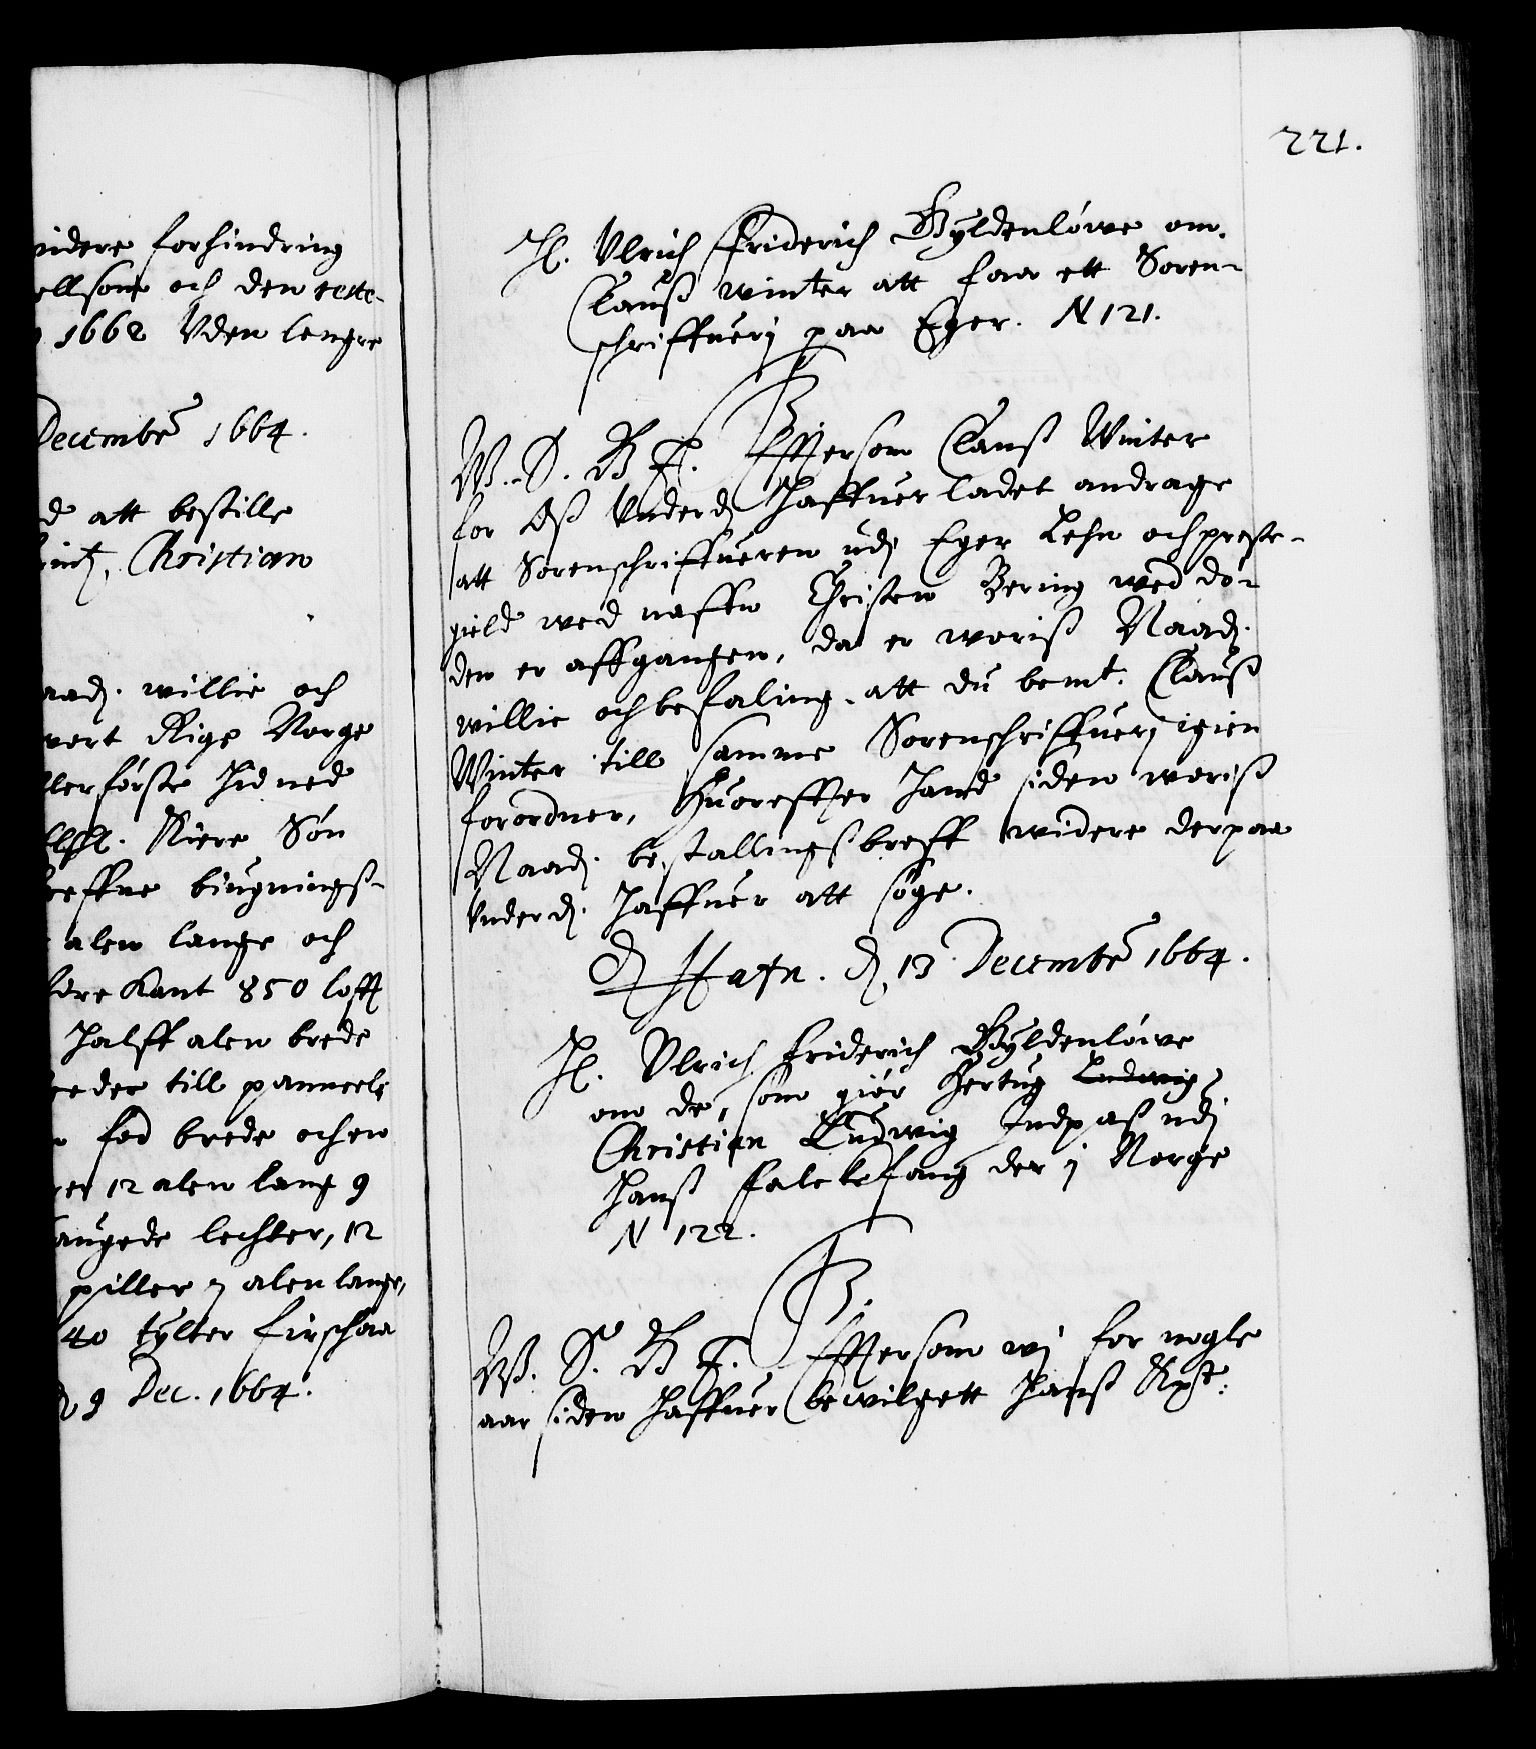 videre forhindring
ellsom och den reste-
1662 Uden lengre
Decembr 1664.
d att bestille
Printz, Christian
naadj. willie och
vort Rige Norge
ller første hid ned
Kiere Søn
breffue biugnings-
alen lange och
Kant 850 loft
halff alen brede
breder till panneele
fod brede och en
12 alen lang 9
laugede lechter, 12
piller 7 alen lange,
40 tylter firschaa
9 Dec. 1664.
221.
H. Ulrich Friderich Gyldenløwe om.
Clauß winter att faa ett Soren-
schriffuerj paa Eger. N 121.
W. S. G F. Effter som Clauß Winter
for Oß Underdj haffuer ladet andrage
att Sorenschriffueren udj Eger Lehn och preste-
gield wed naffn Christen Bering wed dø-
den er affgangen, da er woriß Naadj.
willie och befaling, att du bemt. Clauß
Winter till samme Sorenschriffuerj igien
forordner, Huoreffter hand siden woriß
Naadj. bestallingsbreff widere derpaa
Underdj. haffuer att søge.
Hafn. d 13 Decembr 1664.
H. Ulrich Friderich Gyldenløwe
om de, som giør Hertug Ludwig
Christian Ludwig Indpas udj
hanß falckefang der j Norge
N 122.
W. S. G F. Effter som wj for nogle
aar siden haffuer bewilgett hanß